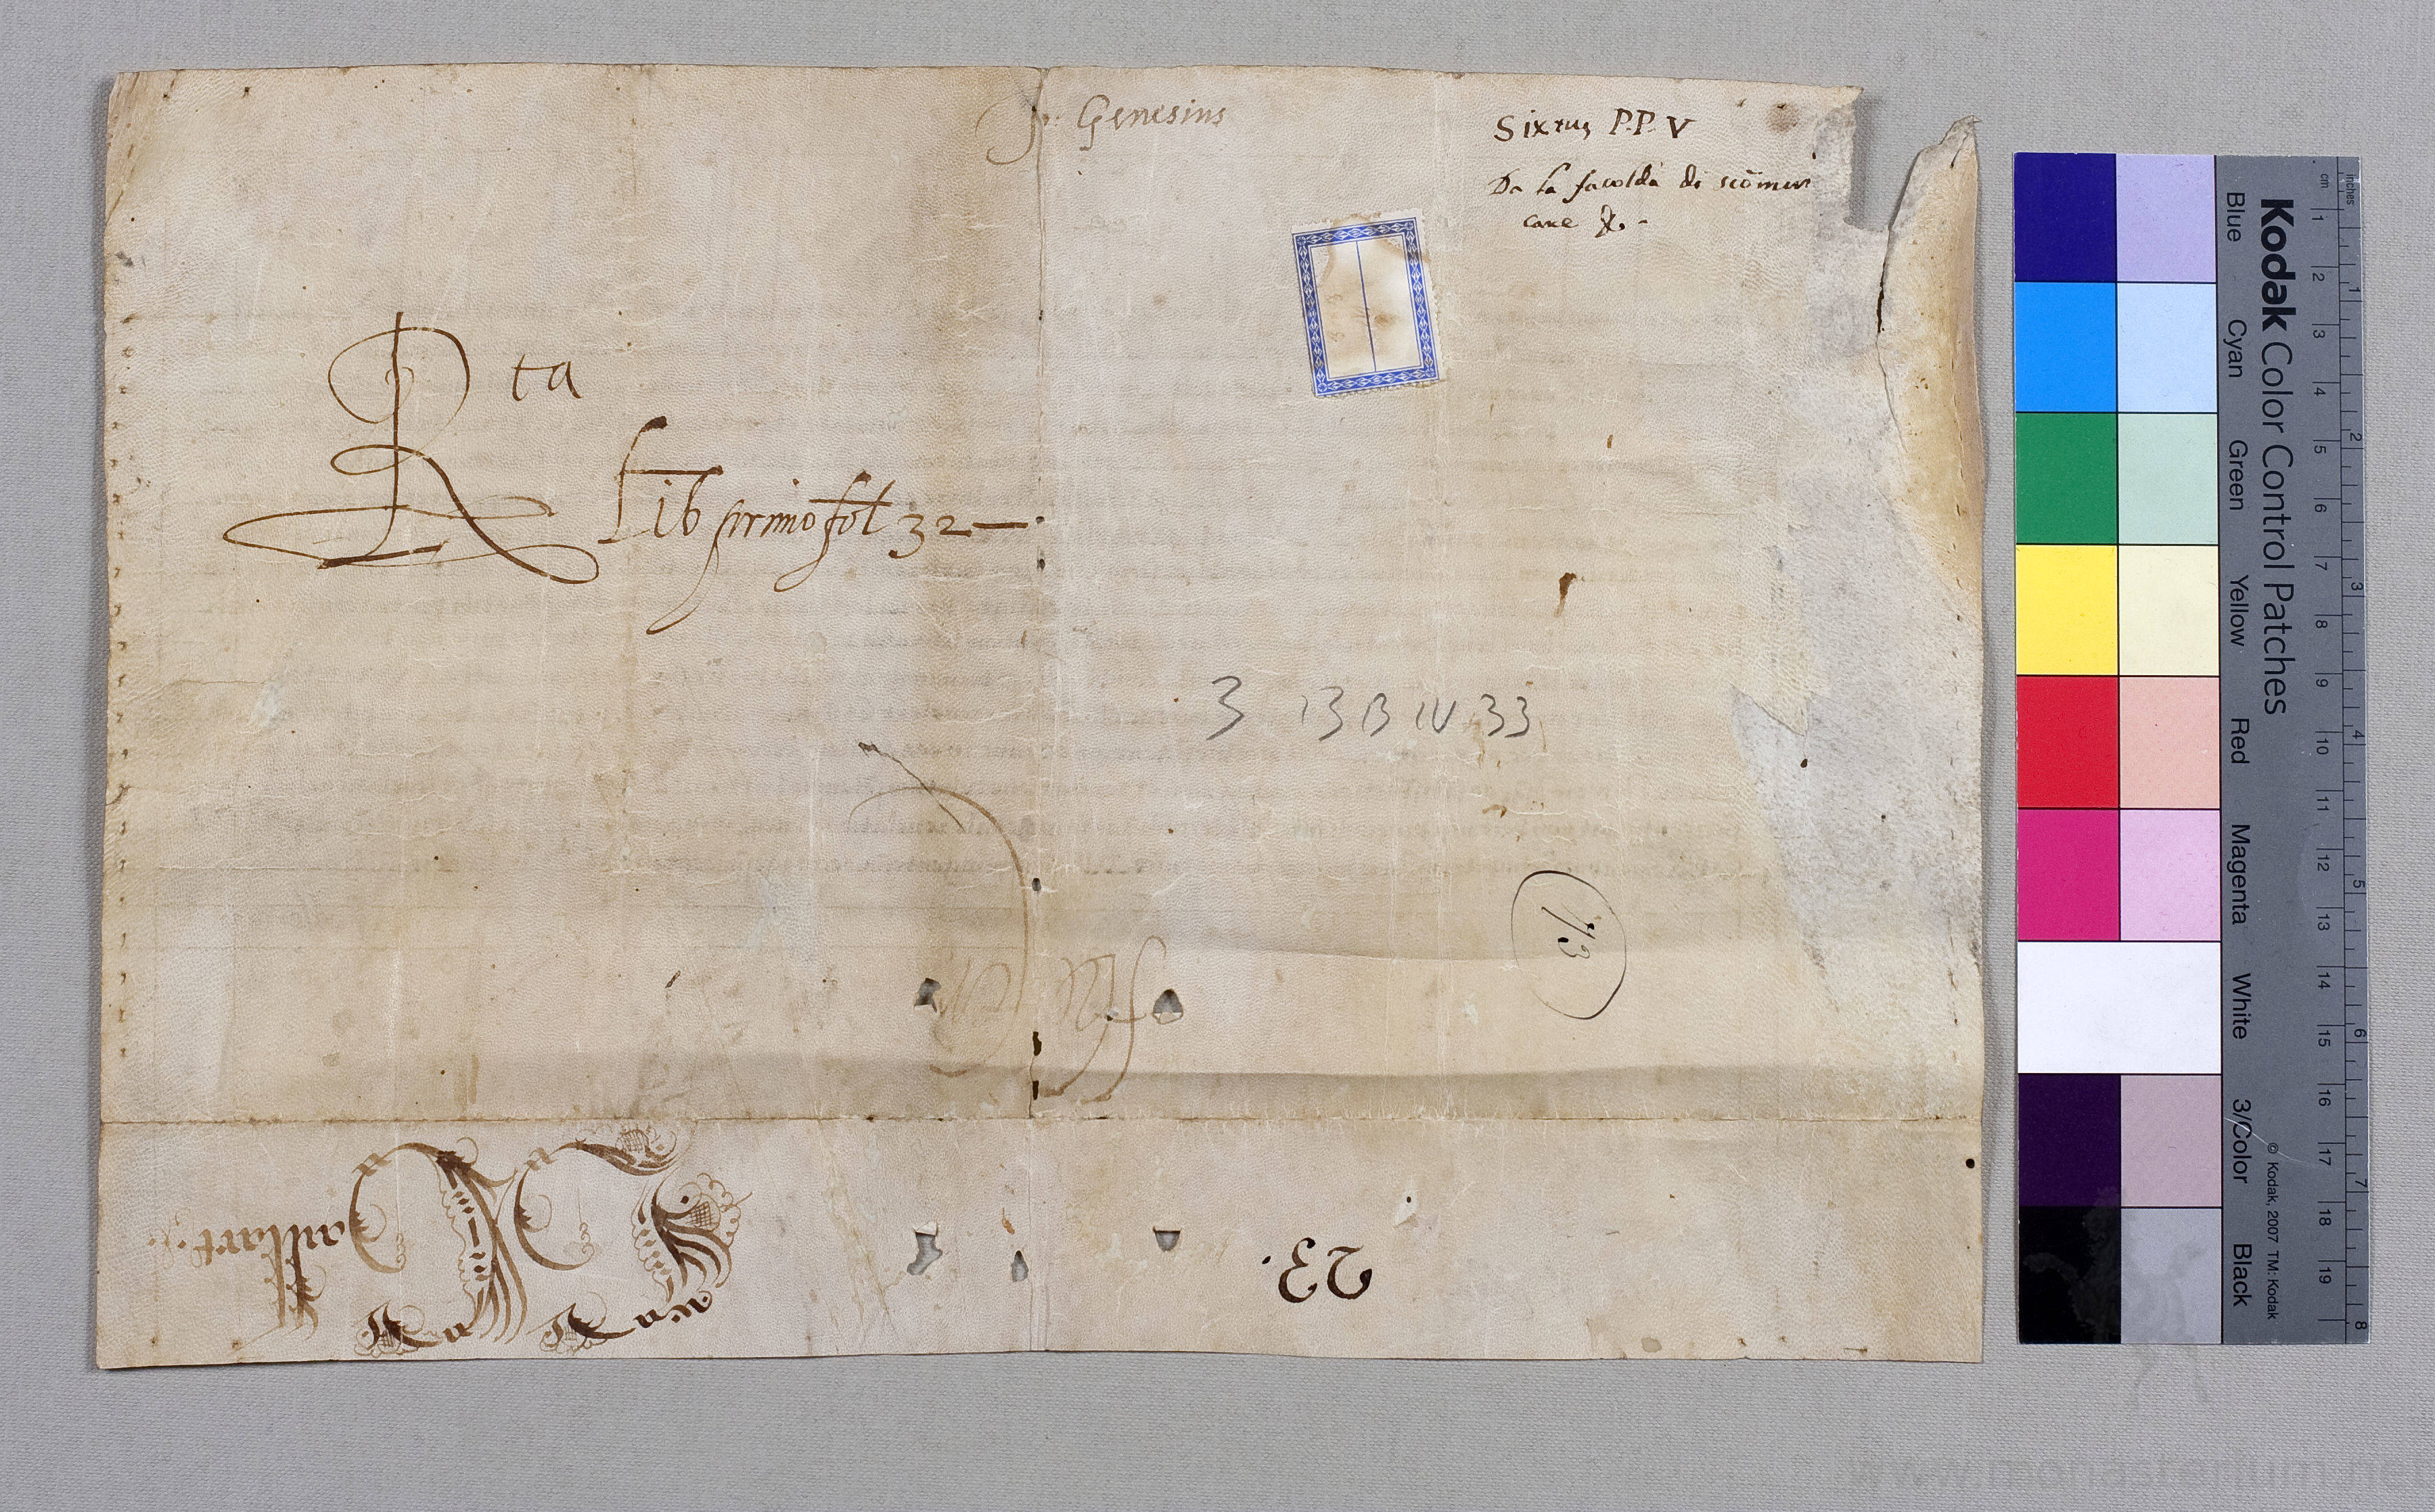 Jo. Genesius
Sixtus P.P. V
Da la facoldà di scōmuni
care &. -
Rta
Lib primo fol 32 —
3 13 B IV 33
113
23.
Kodak Color Control Patches
Blue Cyan Green Yellow Red Magenta White 3/Color Black
© Kodak, 2007 TM: Kodak
cm 1 2 3 4 5 6 7 8 9 10 11 12 13 14 15 16 17 18 19
inches 1 2 3 4 5 6 7 8